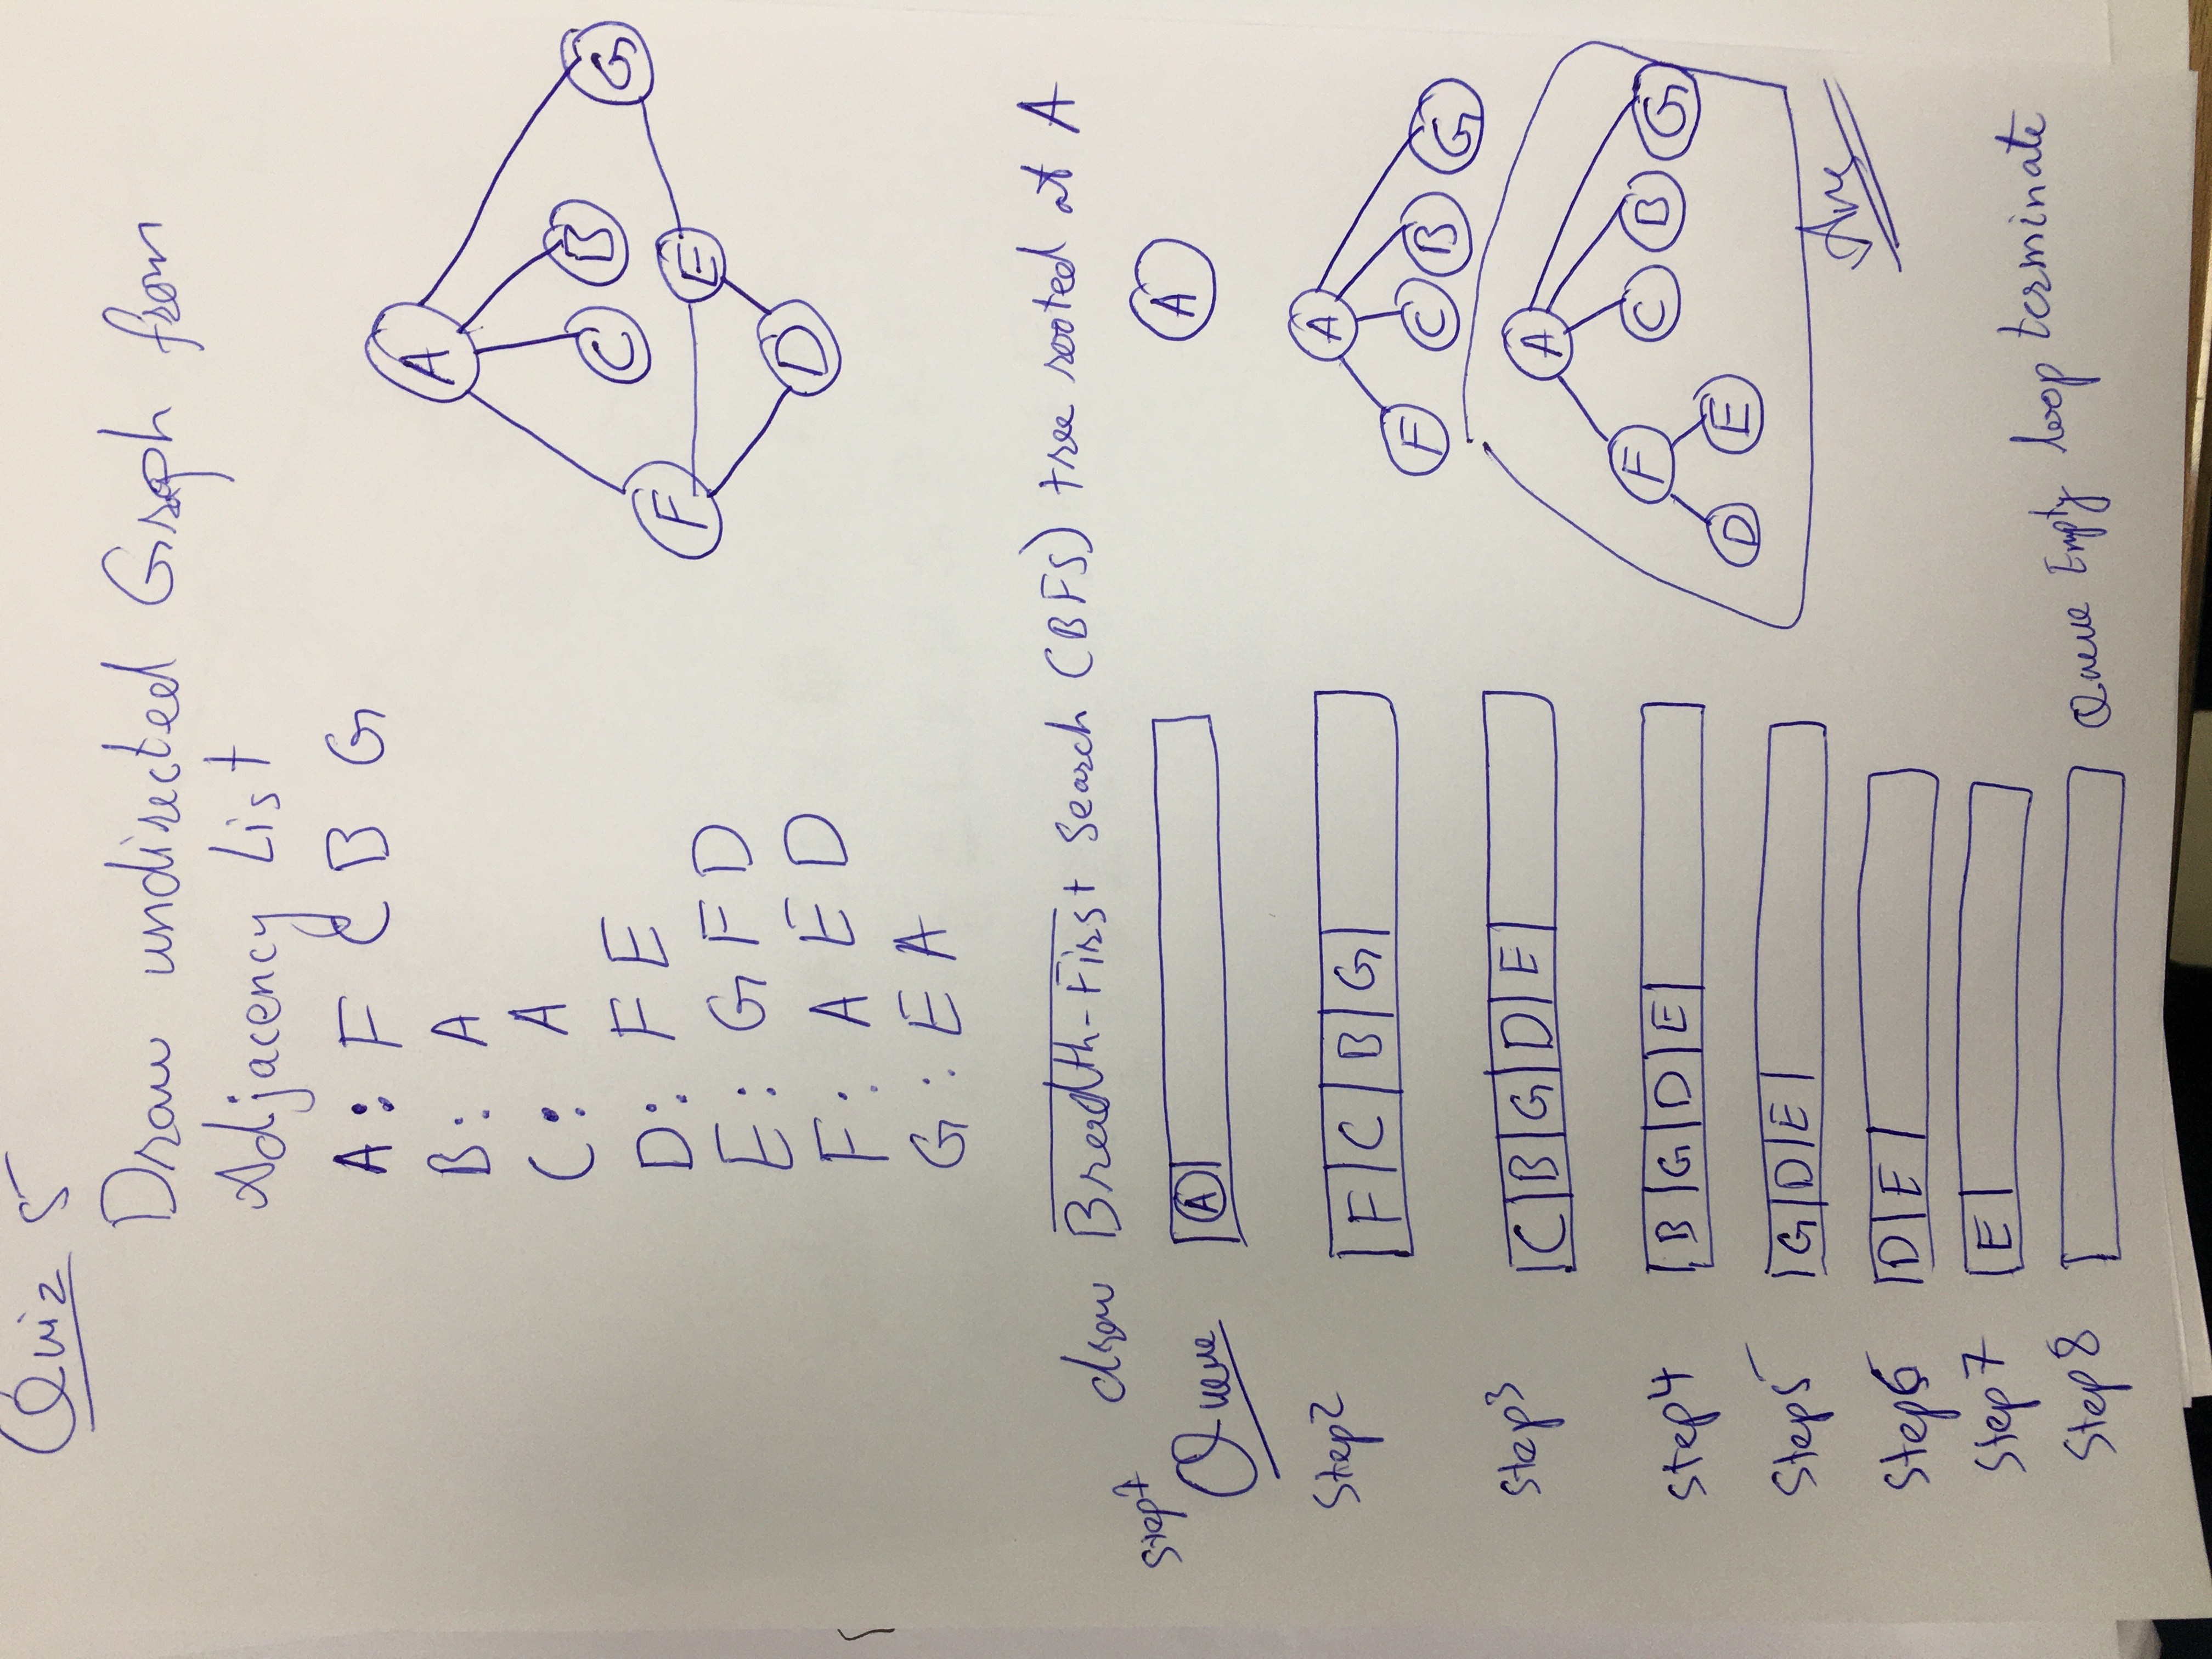 Quiz 5
Draw undirected Graph from
Adjacency List
A: F C B G
B: A
C: A
D: F E
E: G F D
F: A E D
G: E A
A
C B G
F E
D
draw Breadth-First Search (BFS) tree rooted at A
Step1
Queue A
A
Step2 F C B G
A
F C B G
Step3 C B G D E
A
F C B G
D E
Ans
Step4 B G D E
Step5 G D E
Step6 D E
Step7 E
Step8 Queue Empty loop terminate